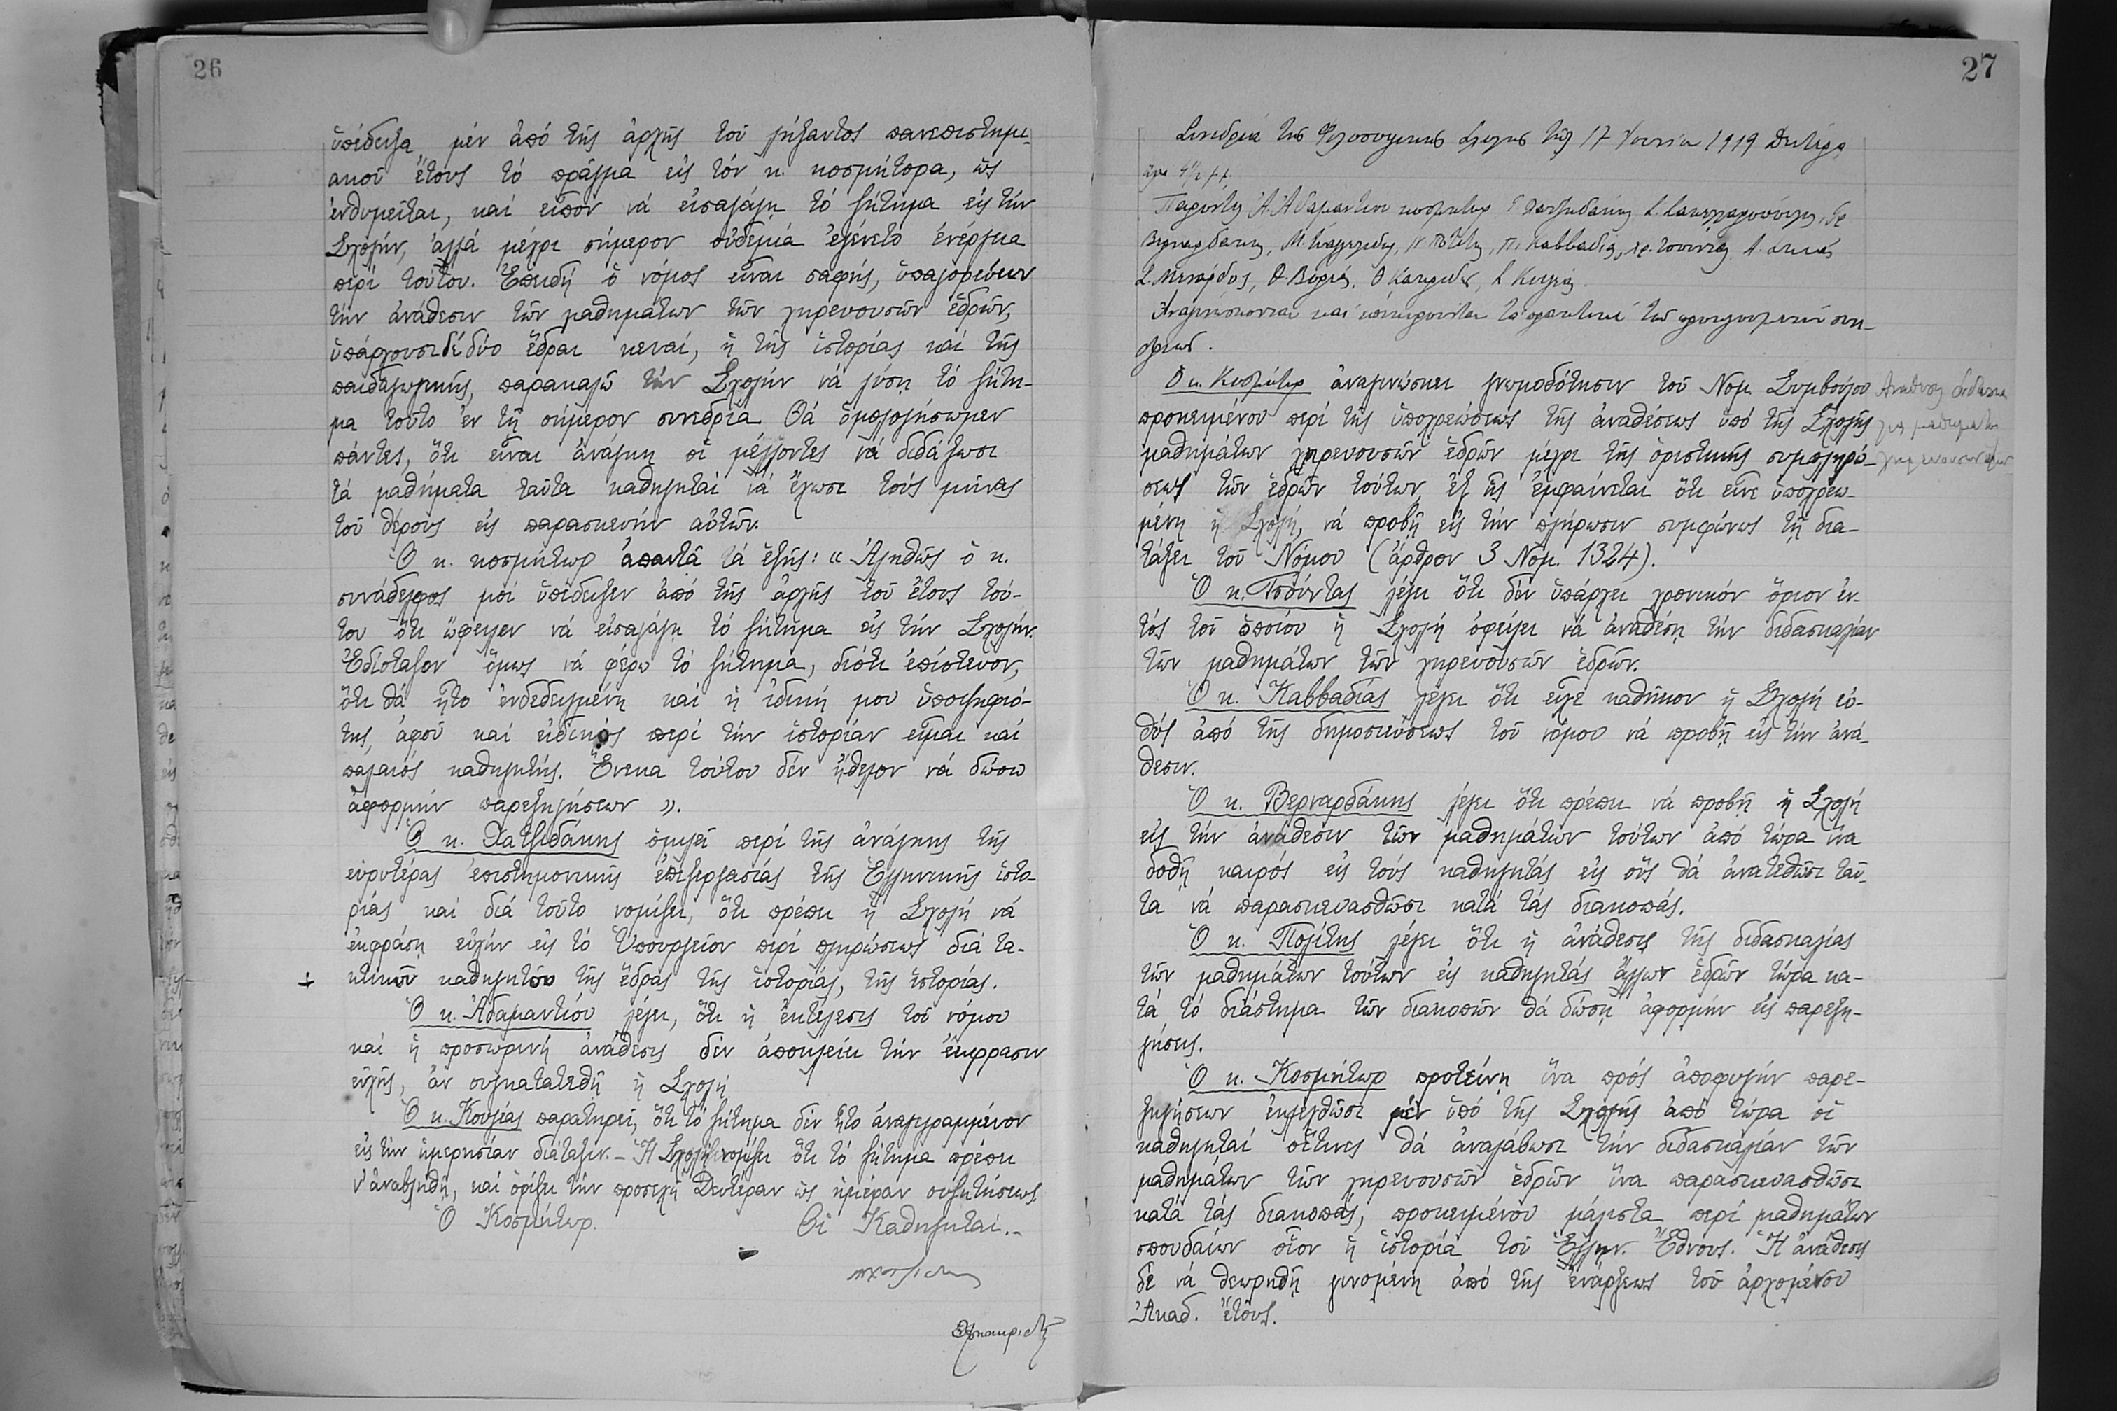 26
ὑπέδειξα μέν ἀπό τῆς ἀρχῆς τοῦ λήξαντος πανεπιστημι-
ακοῦ ἔτους τό πρᾶγμα εἰς τόν κ. κοσμήτορα, ὡς
ἐνθυμεῖται, καί εἶπον νά εἰσαγάγῃ τό ζήτημα εἰς τήν
Σχολήν, ἀλλά μέχρι σήμερον οὐδεμία ἐγένετο ἐνέργεια
περί τούτου. Ἐπειδή ὁ νόμος εἶναι σαφής, ὑπαγορεύων
τήν ἀνάθεσιν τῶν μαθημάτων τῶν χηρευουσῶν ἑδρῶν,
ὑπάρχουσι δέ δύο ἕδραι κεναί, ἡ τῆς ἱστορίας καί τῆς
παιδαγωγικῆς, παρακαλῶ τήν Σχολήν νά λύσῃ τό ζήτη-
μα τοῦτο ἐν τῇ σήμερον συνεδρίᾳ. Θά ὁμολογήσωμεν
πάντες, ὅτι εἶναι ἀνάγκη οἱ μέλλοντες νά διδάξωσι
τά μαθήματα ταῦτα καθηγηταί νά ἔχωσι τούς μῆνας
τοῦ θέρους εἰς παρασκευήν αὐτῶν.
Ὁ κ. κοσμήτωρ ἀπαντᾷ τά ἑξῆς: «Ἀληθῶς ὁ κ.
συνάδελφος μοί ὑπέδειξεν ἀπό τῆς ἀρχῆς τοῦ ἔτους τού-
του ὅτι ὤφειλεν νά εἰσαγάγῃ τό ζήτημα εἰς τήν Σχολήν.
Ἐδίσταζον ὅμως νά φέρω τό ζήτημα, διότι ἐπίστευον,
ὅτι θά ἦτο ἐνδεδειγμένη καί ἡ ἰδική μου ὑποψηφιό-
της, ἀφοῦ καί εἰδικός περί τήν ἱστορίαν εἶμαι καί
παλαιός καθηγητής. Ἕνεκα τούτου δέν ἤθελον νά δώσω
ἀφορμήν παρεξηγήσεων».
Ὁ κ. Χατζιδάκης ὁμιλεῖ περί τῆς ἀνάγκης τῆς
εὐρυτέρας ἐπιστημονικῆς ἐπεξεργασίας τῆς Ἑλληνικῆς ἱστο-
ρίας καί διά τοῦτο νομίζει, ὅτι πρέπει ἡ Σχολή νά
ἐκφράσῃ εὐχήν εἰς τό Ὑπουργεῖον περί πληρώσεως διά τα-
κτικοῦ καθηγητοῦ τῆς ἕδρας τῆς ἱστορίας, τῆς ἱστορίας.
Ὁ κ. Ἀδαμαντίου λέγει, ὅτι ἡ ἐκτέλεσις τοῦ νόμου
καί ἡ προσωρινή ἀνάθεσις δέν ἀποκλείει τήν ἔκφρασιν
εὐχῆς, ἄν συγκατατεθῇ ἡ Σχολή
Ὁ κ. Κουγέας παρατηρεῖ, ὅτι τό ζήτημα δέν ἦτο ἀναγεγραμμένον
εἰς τήν ἡμερησίαν διάταξιν.- Ἡ Σχολή νομίζει ὅτι τό ζήτημα πρέπει
ν' ἀναβληθῇ, καί ὁρίζει τήν προσεχῆ Δευτέραν ὡς ἡμέραν συζητήσεως
Ὁ Κοσμήτωρ. Οἱ Καθηγηταί.-
27
Συνεδρία τῆς Φιλοσοφικῆς Σχολῆς τῆς 17 Ἰουνίου 1919 Δευτέρᾳ
ὥρᾳ 4½ μ.μ.
Παρόντες Ἀ. Ἀδαμαντίου κοσμήτωρ Γ. Χατζιδάκης, Σ. Σακελλαρόπουλος, Δ.
Βερναρδάκης, Μ. Ευαγγελίδης, Ν. Πολίτης, Π. Καββαδίας, Χρ. Τσούντας, Α. Σκιάς
Σ. Μενάρδος, Θ. Βορέας, Σ. Κουγέας.
Ἀναγινώσκονται καί ἐπικυροῦνται τά πρακτικά τῆς προηγουμένης συνε-
δρίας.
Ὁ κ. Κοσμήτωρ ἀναγινώσκει γνωμοδότησιν τοῦ Νομ. Συμβούλου
προκειμένου περί τῆς ὑποχρεώσεως τῆς ἀναθέσεως ὑπό τῆς Σχολῆς
μαθημάτων χηρευουσῶν ἑδρῶν μέχρι τῆς ὁριστικῆς συμπληρώ-
σεως τῶν ἑδρῶν τούτων, ἐξ ἧς ἐμφαίνεται ὅτι εἶνε ὑποχρεω-
μένη ἡ Σχολή, νά προβῇ εἰς τήν πλήρωσιν συμφώνως τῇ δια-
τάξει τοῦ Νόμου (ἄρθρον 3 Νόμ. 1324).
Ὁ κ. Τσούντας λέγει ὅτι δέν ὑπάρχει χρονικόν ὅριον ἐν-
τός τοῦ ὁποίου ἡ Σχολή ὀφείλει νά ἀναθέσῃ τήν διδασκαλίαν
τῶν μαθημάτων τῶν χηρευουσῶν ἑδρῶν.
Ὁ κ. Καββαδίας λέγει ὅτι εἶχε καθῆκον ἡ Σχολή εὐ-
θύς ἀπό τῆς δημοσιεύσεως τοῦ νόμου νά προβῇ εἰς τήν ἀνά-
θεσιν.
Ὁ κ. Βερναρδάκης λέγει ὅτι πρέπει νά προβῇ ἡ Σχολή
εἰς τήν ἀνάθεσιν τῶν μαθημάτων τούτων ἀπό τώρα ἵνα
δοθῇ καιρός εἰς τούς καθηγητάς εἰς οὕς θά ἀνατεθῶσι ταῦ-
τα νά παρασκευασθῶσι κατά τάς διακοπάς.
Ὁ κ. Πολίτης λέγει ὅτι ἡ ἀνάθεσις τῆς διδασκαλίας
τῶν μαθημάτων τούτων εἰς καθηγητάς ἄλλων ἑδρῶν τώρα κα-
τά τό διάστημα τῶν διακοπῶν θά δώσῃ ἀφορμήν εἰς παρεξη-
γήσεις.
Ὁ κ. Κοσμήτωρ προτείνει ἵνα πρός ἀποφυγήν παρε-
ξηγήσεων ἐκλεχθῶσι μέν ὑπό τῆς Σχολῆς ἀπό τώρα οἱ
καθηγηταί οἵτινες θά ἀναλάβωσι τήν διδασκαλίαν τῶν
μαθημάτων τῶν χηρευουσῶν ἑδρῶν ἵνα παρασκευασθῶσι
κατά τάς διακοπάς, προκειμένου μάλιστα περί μαθημάτων
σπουδαίων οἷον ἡ ἱστορία τοῦ Ἑλλην. Ἔθνους. Ἡ ἀνάθεσις
δέ νά θεωρηθῇ γινομένη ἀπό τῆς ἐνάρξεως τοῦ ἀρχομένου
Ἀκαδ. ἔτους.